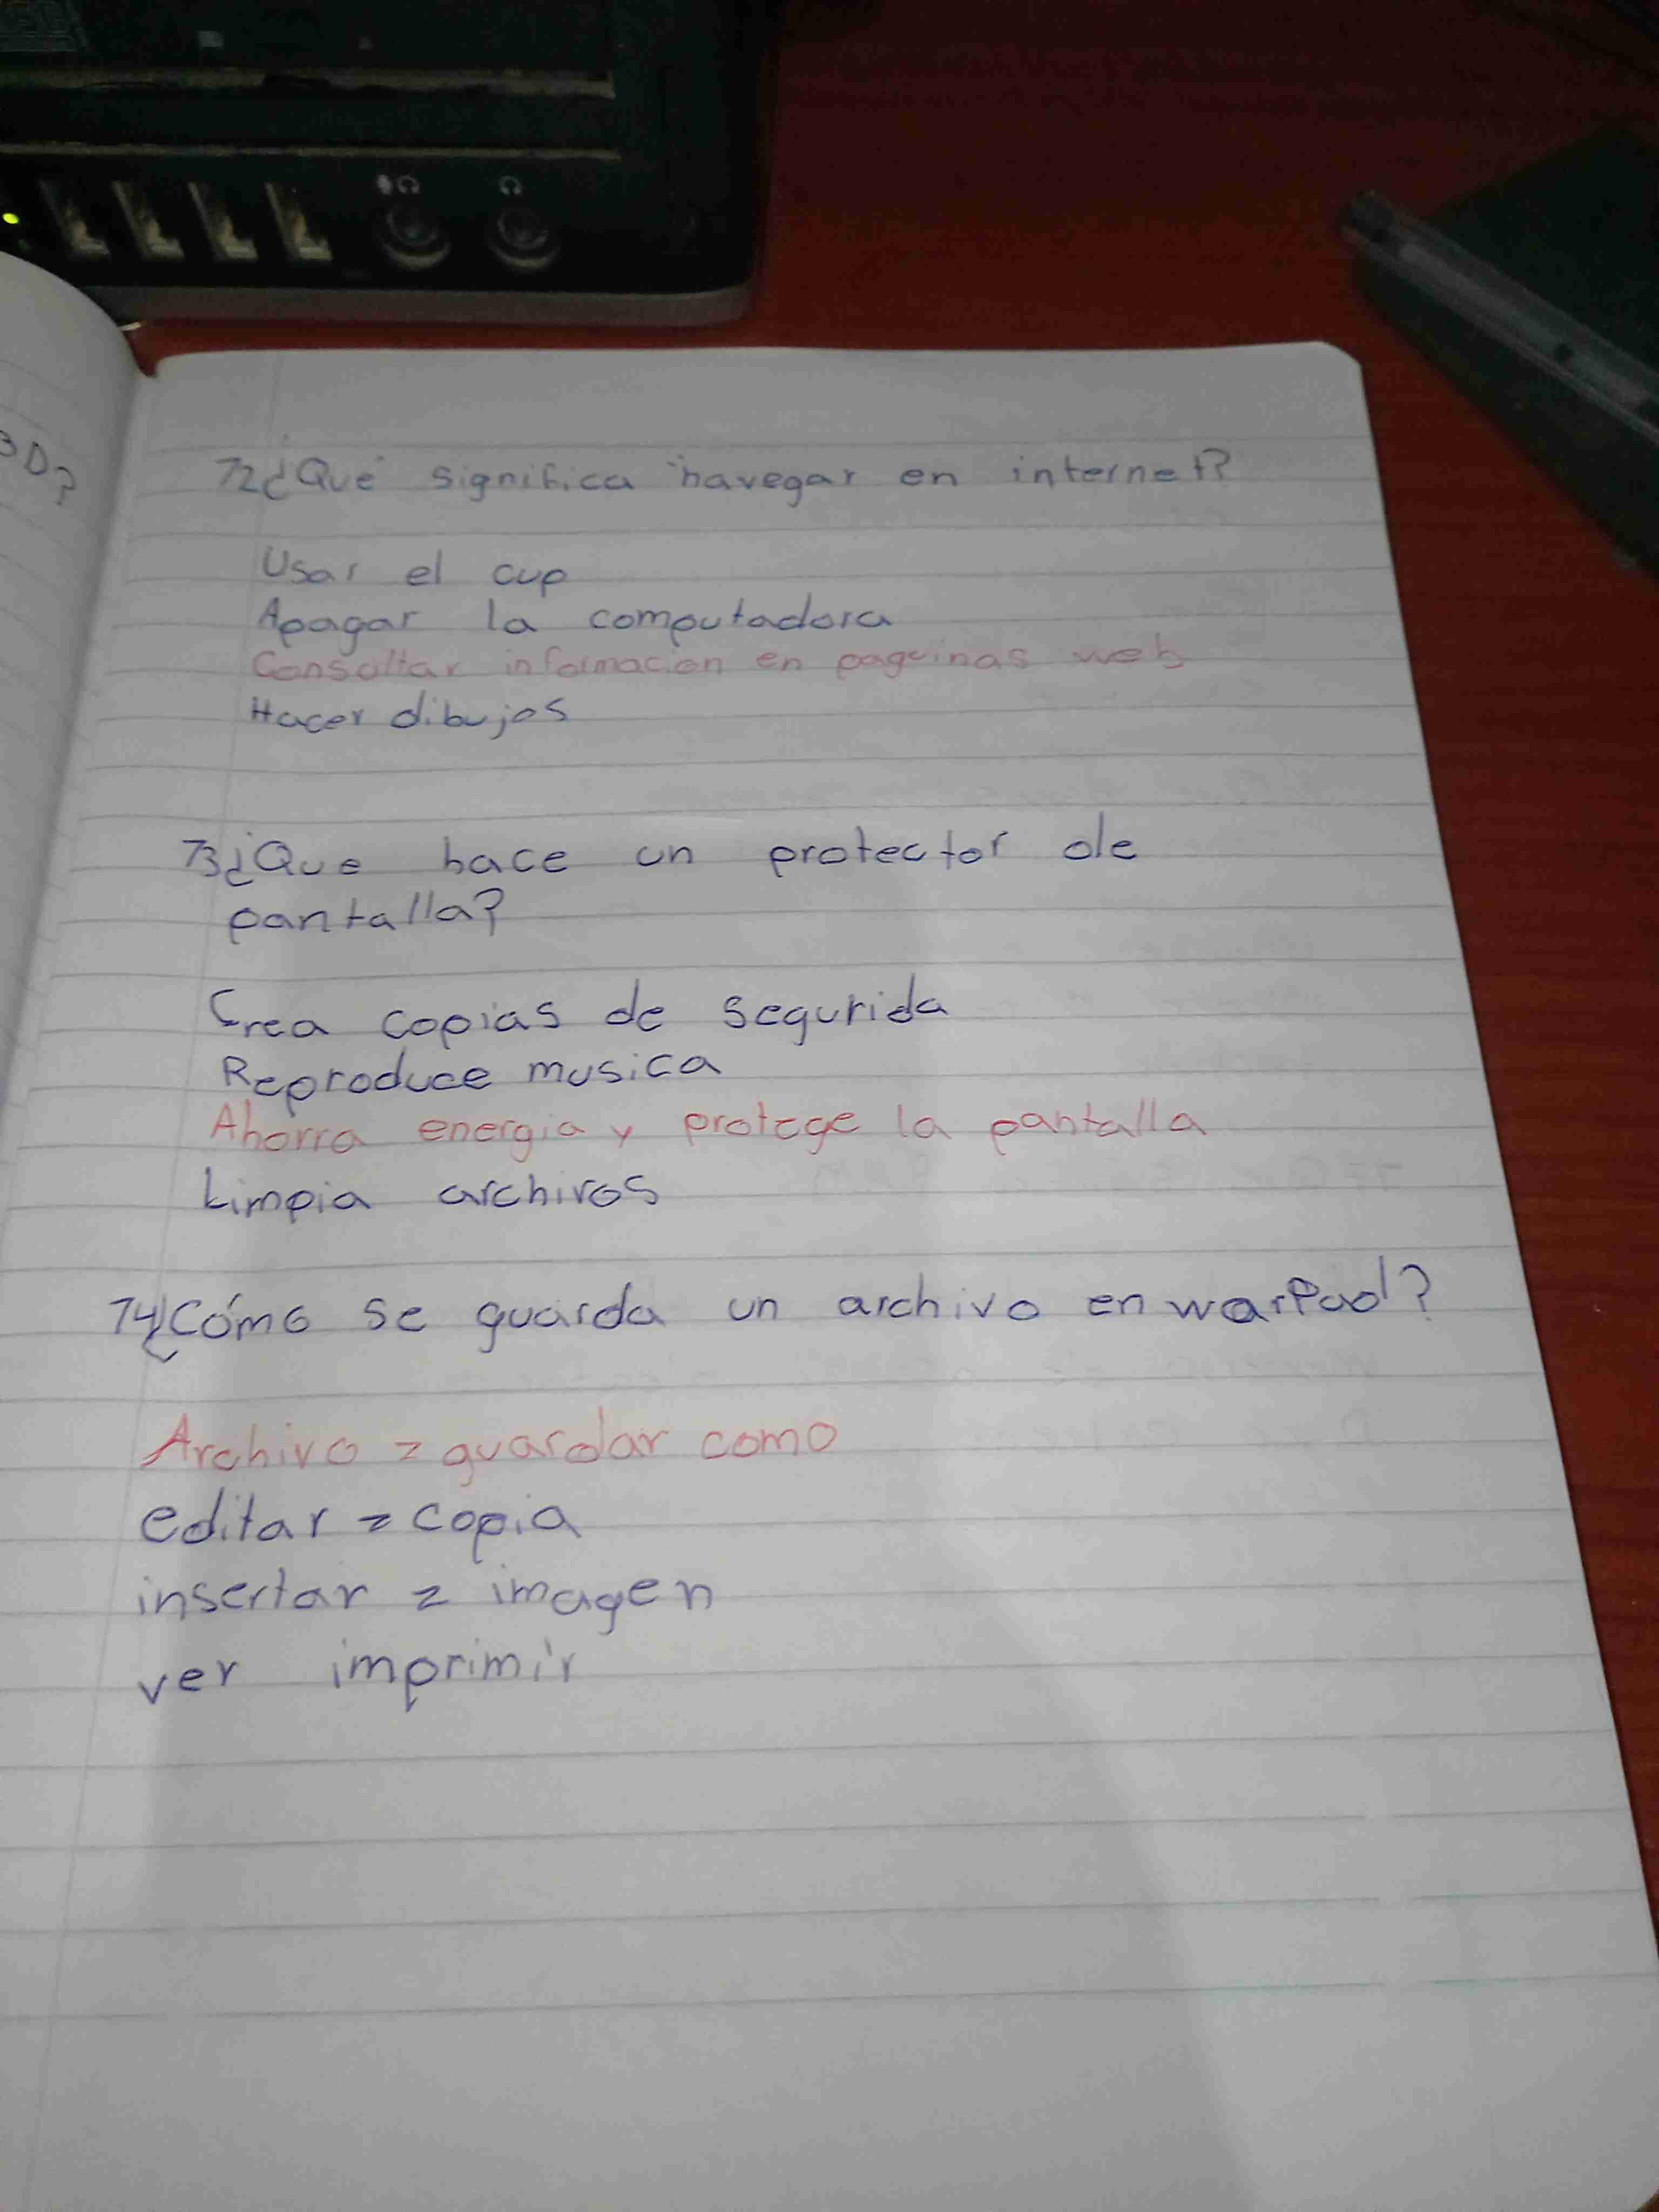 3D?
72¿Qué significa navegar en internet?
Usar el cup
Apagar la computadora
Consultar informacion en paguinas web
Hacer dibujos
73¿Que hace un protector de
pantalla?
Crea copias de segurida
Reproduce musica
Ahorra energia y protege la pantalla
Limpia archivos
74¿Cómo se guarda un archivo en warPad?
Archivo = guardar como
editar = copia
insertar = imagen
ver imprimir